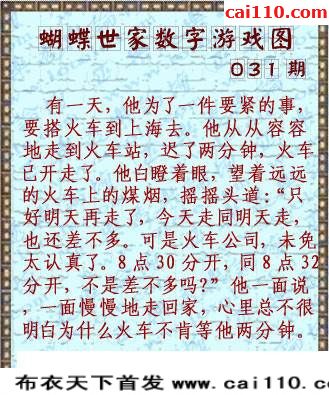 cai110.com
蝴蝶世家数字游戏图
031期
有一天，他为了一件要紧的事，
要搭火车到上海去。他从从容容
地走到火车站，迟了两分钟，火车
已开走了。他白瞪着眼，望着远远
的火车上的煤烟，摇摇头道：“只
好明天再走了，今天走同明天走，
也还差不多。可是火车公司，未免
太认真了。8点30分开，同8点32
分开，不是差不多吗？”他一面说
，一面慢慢地走回家，心里总不很
明白为什么火车不肯等他两分钟。
布衣天下首发 www.cai110.c